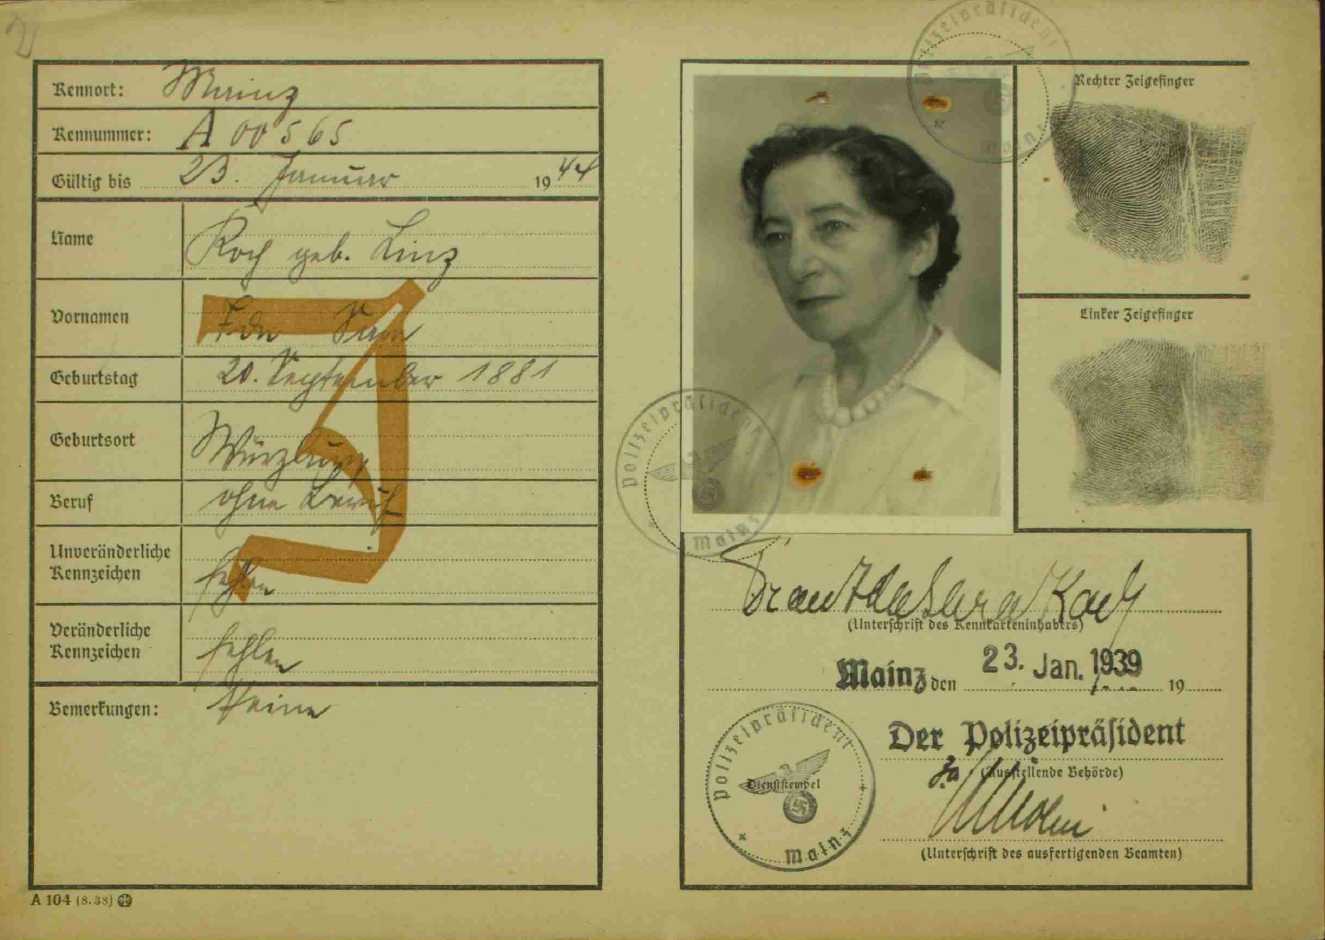 Kennort: Mainz
Kennummer: A 00565
Gültig bis 23. Januar 1944
Name
Koch geb. Linz
Vornamen
Ida Sara
Geburtstag
20. September 1881
Geburtsort
Würzburg
Beruf
ohne Beruf
Unveränderliche
Kennzeichen
fehlen
Veränderliche
Kennzeichen
fehlen
Bemerkungen: Keine
J
A 104 (8.38)
Polizeipräsident
Mainz
Rechter Zeigefinger
Linker Zeigefinger
Polizeipräsident
Mainz
Frau Ida Sara Koch
(Unterschrift des Kennkarteninhabers)
Mainz den 23. Jan. 1939 19
Der Polizeipräsident
(Ausstellende Behörde)
Polizeipräsident
Dienststempel
Mainz
(Unterschrift des ausfertigenden Beamten)